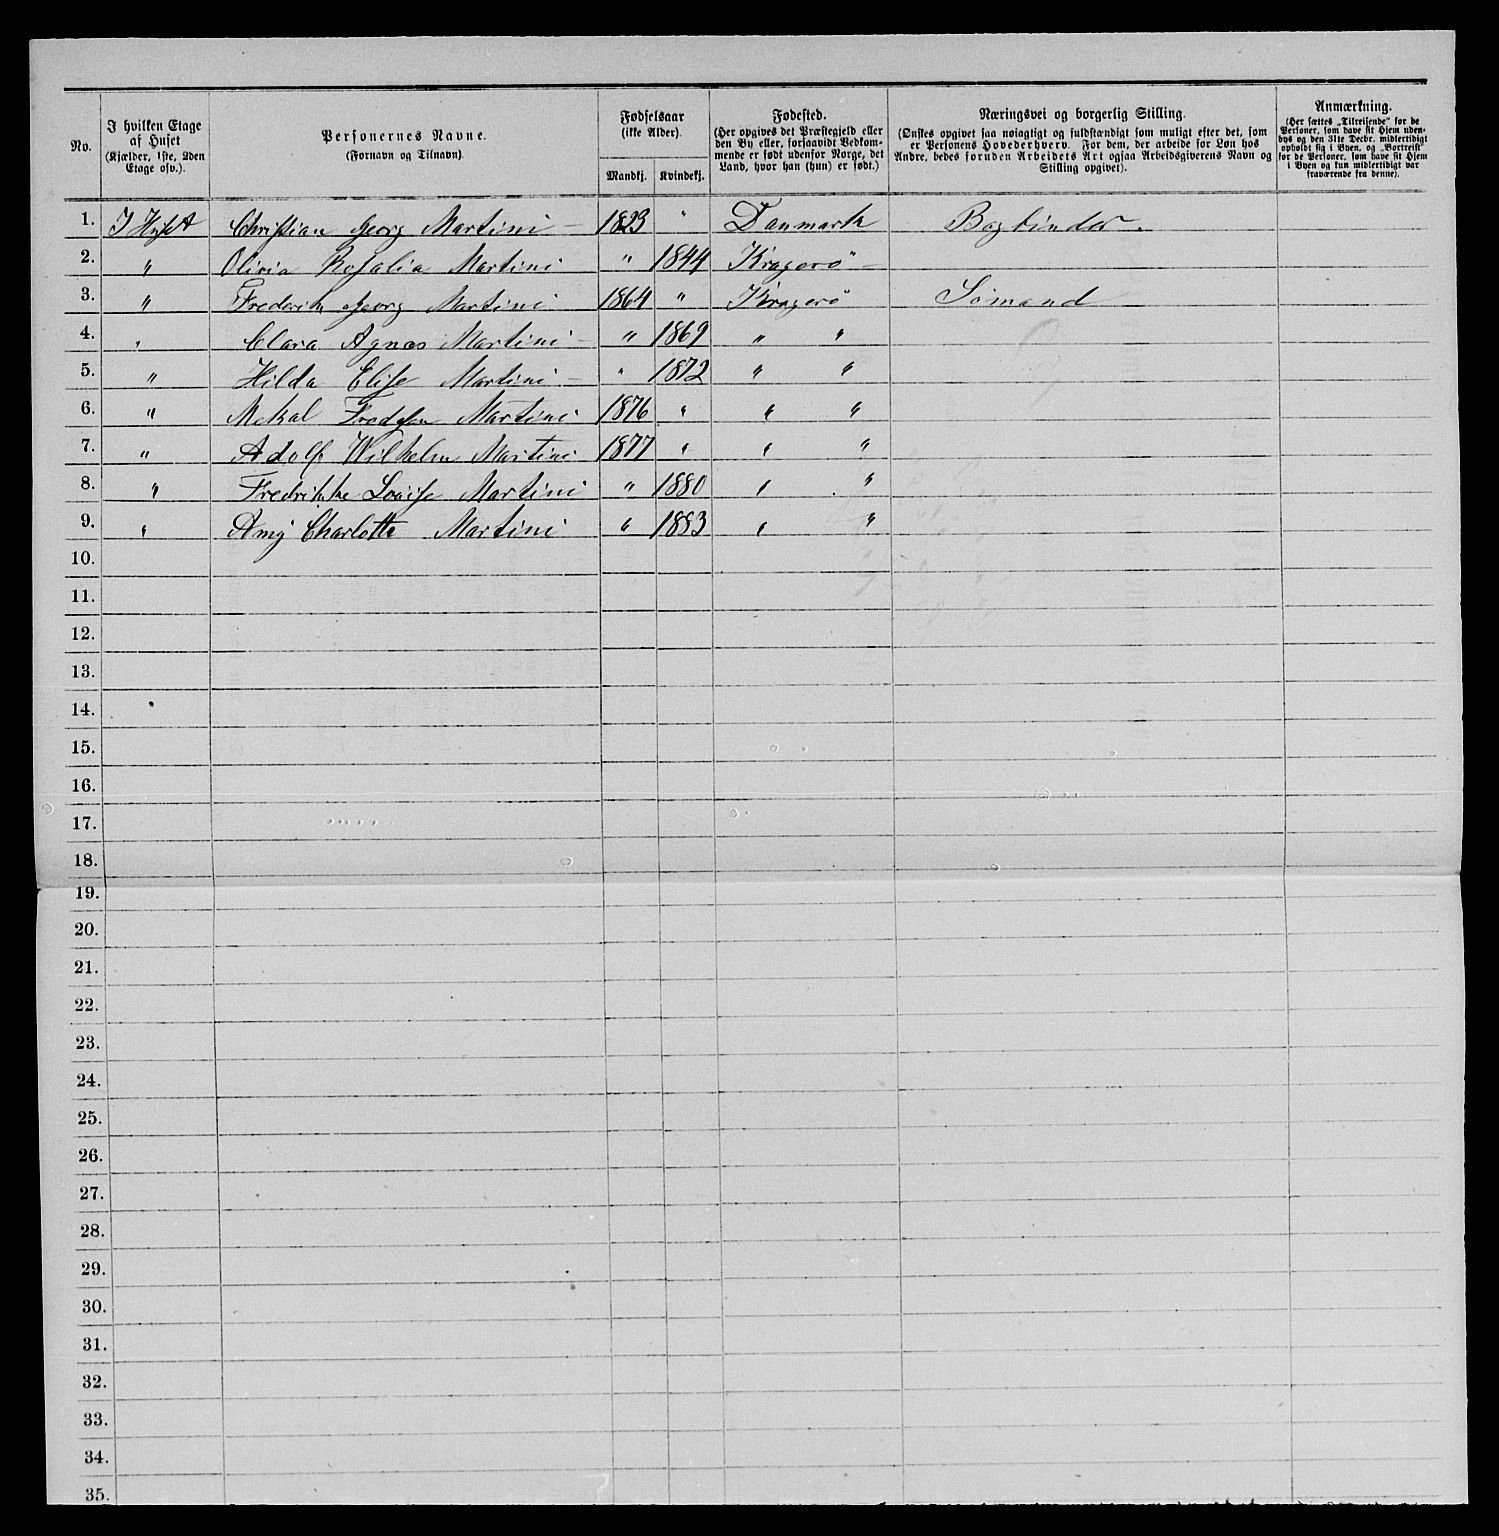 No.
I hvilken Etage af Huset (Kjælder, 1ste, 2den Etage osv.).
Personernes Navne. (Fornavn og Tilnavn).
Fødselsaar (ikke Alder).
Mandkj. Kvindekj.
Fødested. (Her opgives det Præstegjeld eller den By eller, forsaavidt Vedkommende er født udenfor Norge, det Land, hvor han (hun) er født.)
Næringsvei og borgerlig Stilling. (Ønskes opgivet saa nøiagtigt og fuldstændigt som muligt efter det, som er Personens Hovederhverv. For dem, der arbeide for Løn hos Andre, bedes foruden Arbeidets Art ogsaa Arbeidsgiverens Navn og Stilling opgivet).
Anmærkning. (Her sættes „Tilreisende“ for de Personer, som have sit Hjem udenbys og den 31te Decbr. midlertidigt opholdt sig i Byen, og „Bortreist“ for de Personer, som have sit Hjem i Byen og kun midlertidigt var fraværende fra denne).
1. I Huset Christian Georg Martini – 1823 " Danmark Bogbinder.
2. " Olivia Rosalia Martini " 1844 Kragerö –
3. " Frederik Georg Martini 1864 " Kragerö Sömand
4. " Clara Agnes Martini – " 1869 " "
5. " Hilda Elise Martini – " 1872 " "
6. " Martini 1876 " " "
7. " Adolf Wilhelm Martini 1877 " " "
8. " Fredrikke Lovise Martini " 1880 " "
9. " Amy Charlotte Martini " 1883 " "
10.
11.
12.
13.
14.
15.
16.
17.
18.
19.
20.
21.
22.
23.
24.
25.
26.
27.
28.
29.
30.
31.
32.
33.
34.
35.